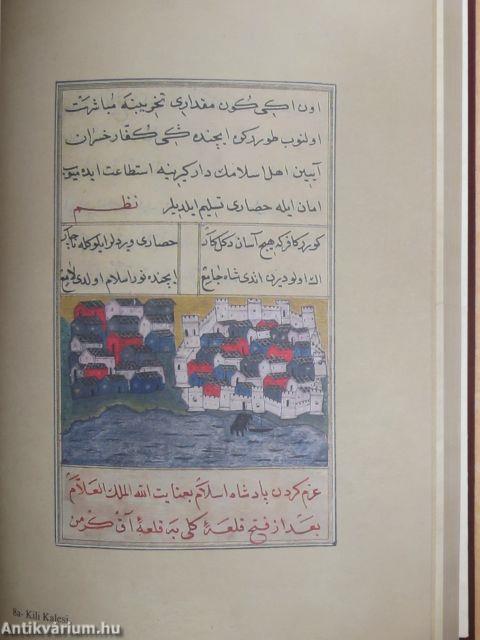 اون اكی كون مقداری تخریبنه مباشرت
اولنوب طوردركن ایچنده كی كفار خسران
آیین اهل اسلامك داركیرینه استطاعت ایده میوب
امان ایله حصاری تسلیم ایلدیلر نظم
كوردر كافر كه هیچ آسان دكل كار حصاری ویردیلر
ایچنده نور اسلام اولدی
عزم كردن پادشاه اسلام بعنایت الله الملك العلام
بعد از فتح قلعهٔ كلی به قلعهٔ آق كرمن
8a- Kili Kalesi.
Antikvárium.hu